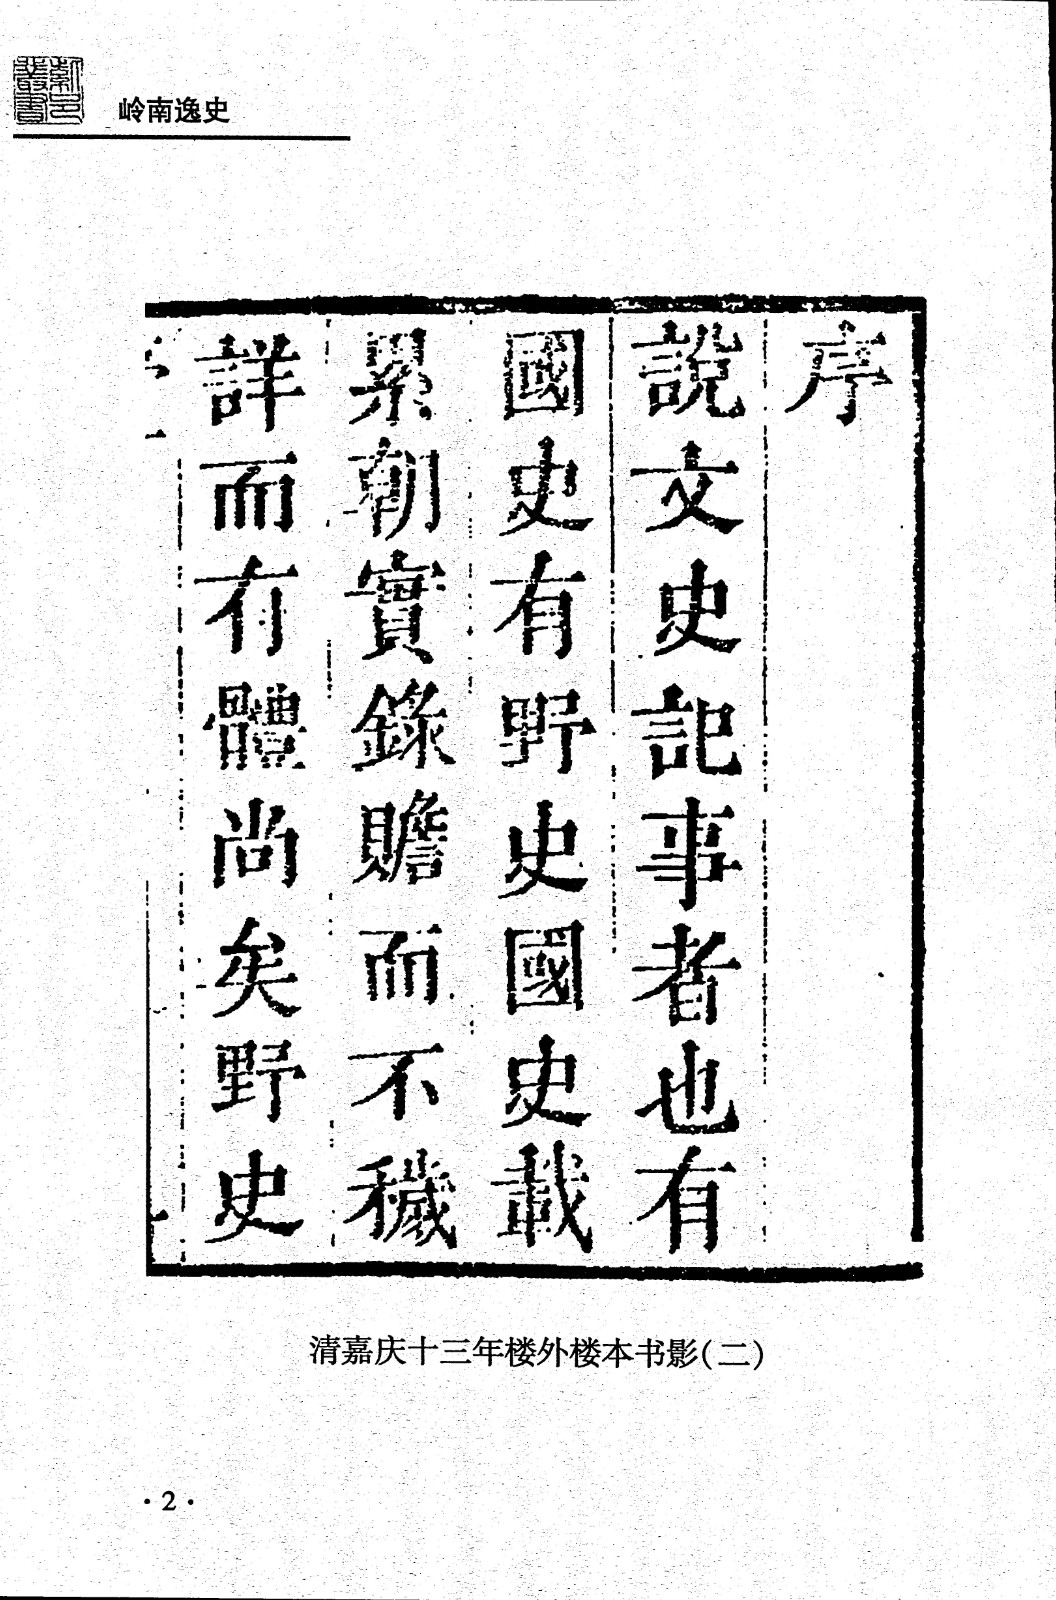 岭南逸史
序
說文史記事者也有
國史有野史國史載
累朝實錄贍而不穢
詳而有體尚矣野史
清嘉庆十三年楼外楼本书影(二)
·2·